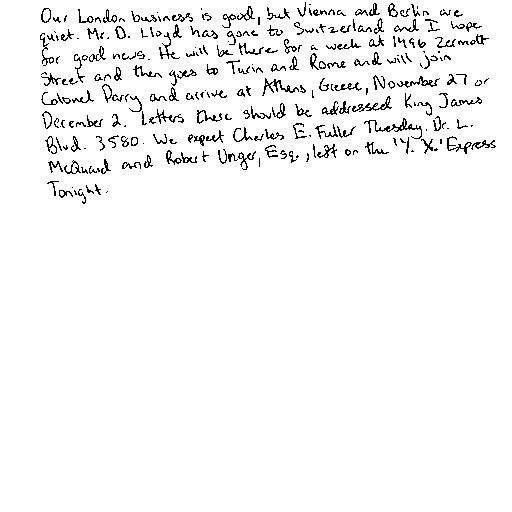 Our London business is good, but Vienna and Berlin are
quiet. Mr. D. Lloyd has gone to Switzerland and I hope
for good news. He will be there for a week at 1496 Zermott
Street and then goes to Turin and Rome and will join
Colonel Parry and arrive at Athens, Greece, November 27 or
December 2. Letters there should be addressed King James
Blvd. 3580. We expect Charles E. Fuller Tuesday. Dr. L.
McQuaid and Robert Unger, Esq., left on the 'Y. X.' Express
Tonight.